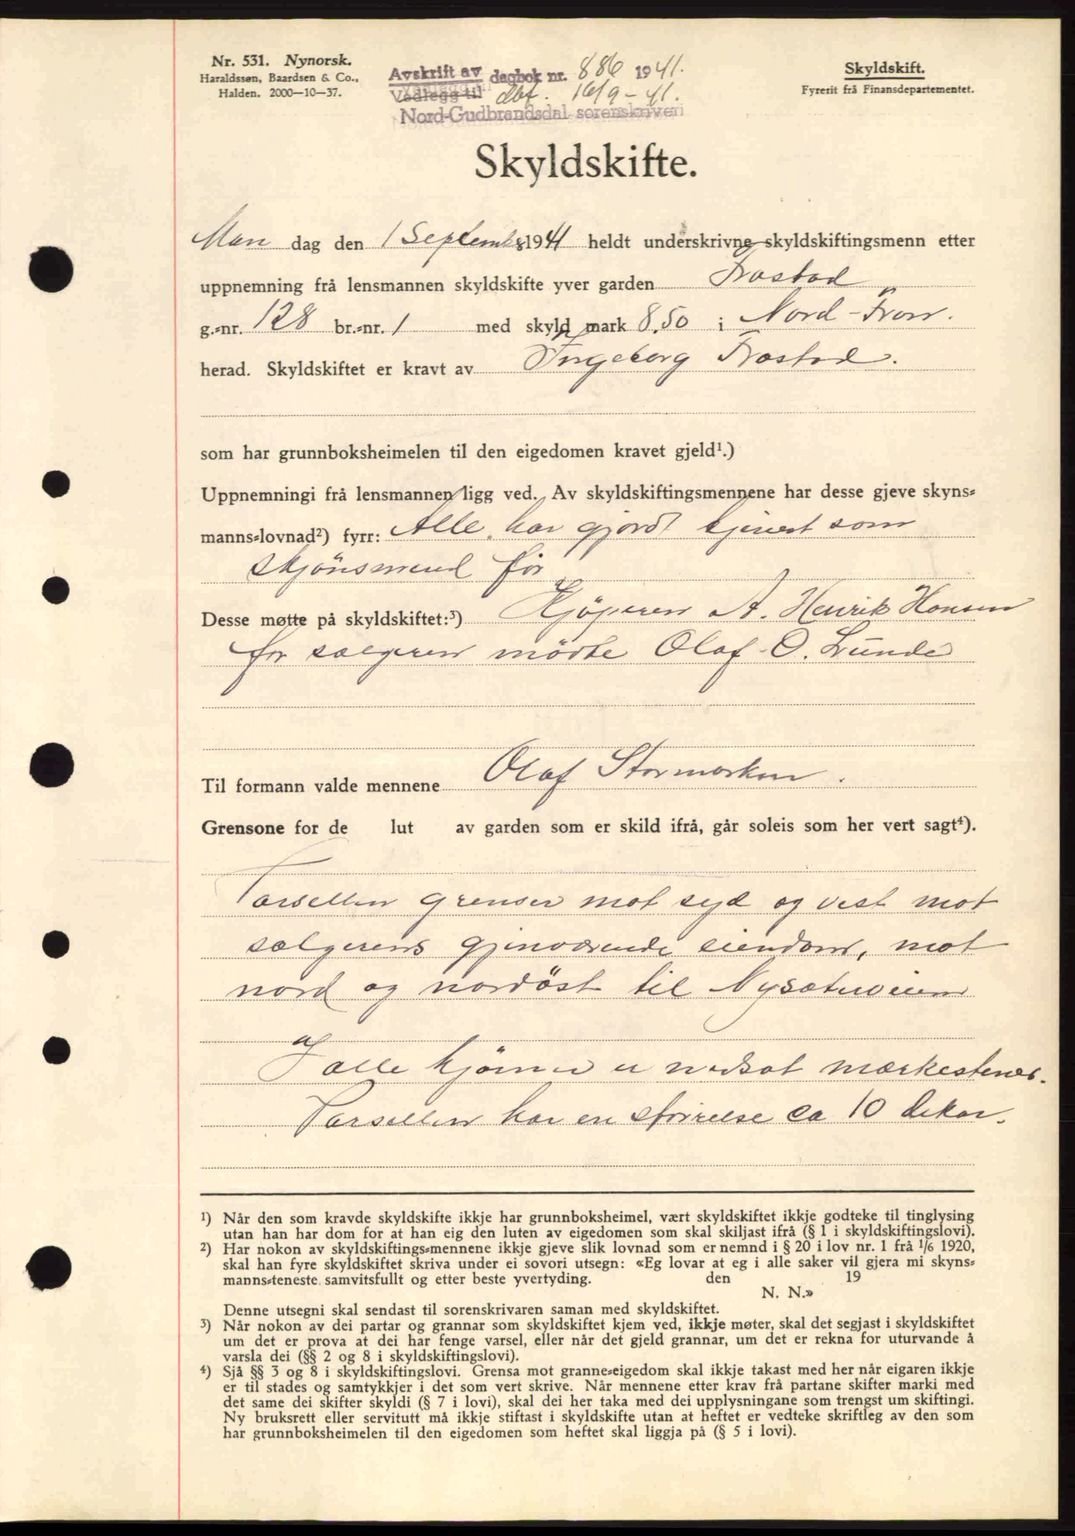 Nr. 531. Nynorsk.
Haraldssøn, Baardsen & Co.,
Halden. 2000—10—37.
Avskrift av dagbok nr. 886 1941.
Vedlegg til dbf. 16/9-41.
Nord-Gudbrandsdal sorenskriveri
Skyldskift.
Fyrerit frå Finansdepartementet.
Skyldskifte.
Man dag den 1 Septemb. 1941 heldt underskrivne skyldskiftingsmenn etter
uppnemning frå lensmannen skyldskifte yver garden Frostad
g.-nr. 128 br.-nr. 1 med skyld mark 8,50 i Nord-Fron.
herad. Skyldskiftet er kravt av Ingeborg Frostad.
som har grunnboksheimelen til den eigedomen kravet gjeld¹.)
Uppnemningi frå lensmannen ligg ved. Av skyldskiftingsmennene har desse gjeve skyns-
manns-lovnad²) fyrr: Alle har gjordt tjenest som
skjönsmend för
Desse møtte på skyldskiftet:³) Kjöperen A. Henrik Hansen
for sælgeren mödte Olaf O. Lunde
Til formann valde mennene Olaf Stormorken.
Grensone for de lut av garden som er skild ifrå, går soleis som her vert sagt⁴).
Parsellen grenser mot syd og vest mot
sælgerens gjenværende eiendom, mot
nord og nordöst til Nysæterveien
I alle hjörner er nedsat mærkestener.
Parsellen har en störrelse ca 10 dekar.
¹) Når den som kravde skyldskifte ikkje har grunnboksheimel, vært skyldskiftet ikkje godteke til tinglysing
utan han har dom for at han eig den luten av eigedomen som skal skiljast ifrå (§ 1 i skyldskiftingslovi).
²) Har nokon av skyldskiftings-mennene ikkje gjeve slik lovnad som er nemnd i § 20 i lov nr. 1 frå 1/6 1920,
skal han fyre skyldskiftet skriva under ei sovori utsegn: «Eg lovar at eg i alle saker vil gjera mi skyns-
manns-teneste samvitsfullt og etter beste yvertyding. den 19
N. N.»
Denne utsegni skal sendast til sorenskrivaren saman med skyldskiftet.
³) Når nokon av dei partar og grannar som skyldskiftet kjem ved, ikkje møter, skal det segjast i skyldskiftet
um det er prova at dei har fenge varsel, eller når det gjeld grannar, um det er rekna for uturvande å
varsla dei (§§ 2 og 8 i skyldskiftingslovi).
⁴) Sjå §§ 3 og 8 i skyldskiftingslovi. Grensa mot granne-eigedom skal ikkje takast med her når eigaren ikkje
er til stades og samtykkjer i det som vert skrive. Når mennene etter krav frå partane skifter marki med
det same dei skifter skyldi (§ 7 i lovi), skal dei her taka med dei upplysningane som trengst um skiftingi.
Ny bruksrett eller servitutt må ikkje stiftast i skyldskifte utan at heftet er vedteke skriftleg av den som
har grunnboksheimelen til den eigedomen som heftet skal liggja på (§ 5 i lovi).